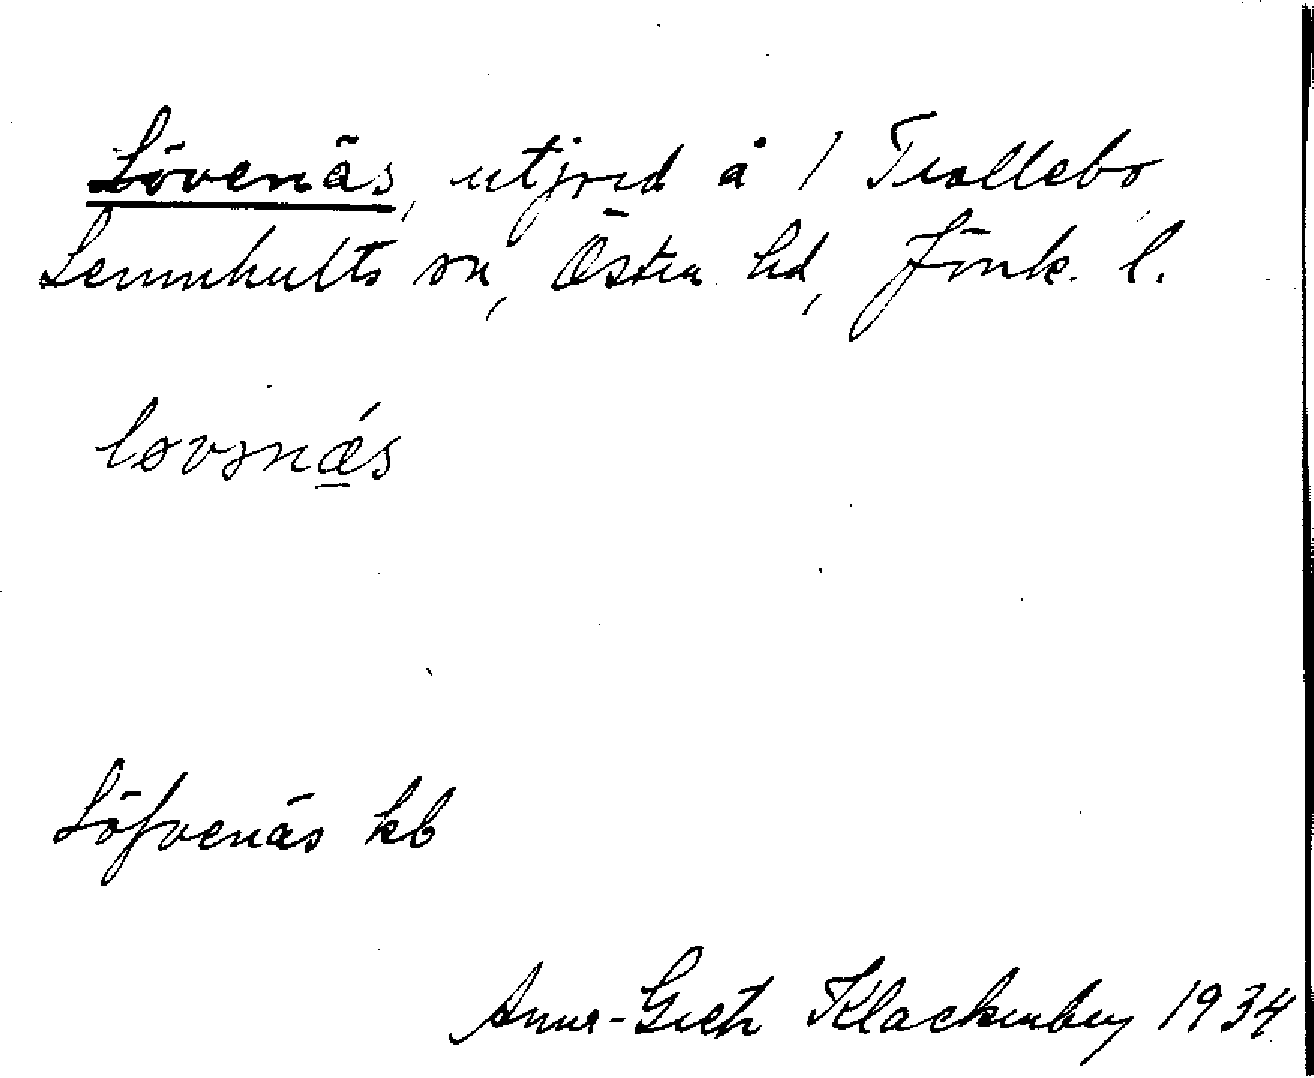 Lövenäs, utjord å 1 Trollebo
Lemnhults sn, Östra hd, Jönk. l.
løvənǽ̲s
Löfvenäs kb
Anna-Greta Klackenberg 1934